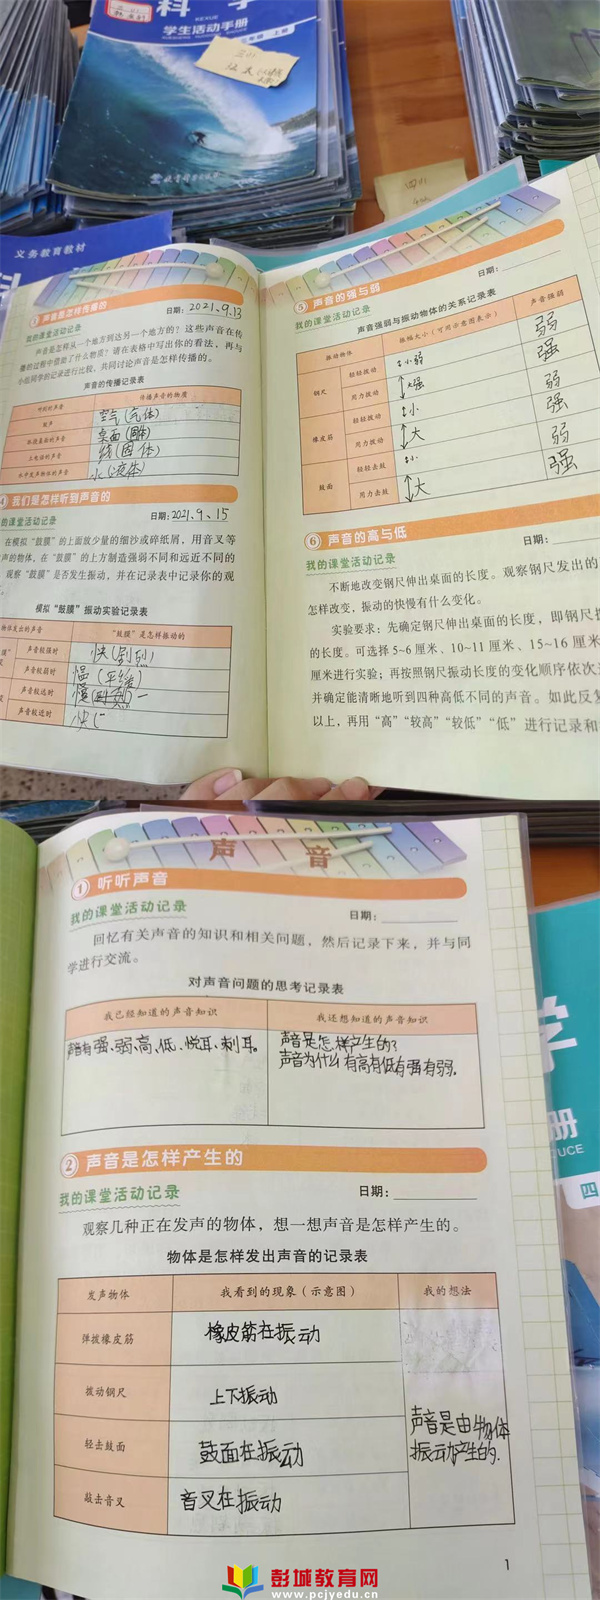 科学
KEXUE
学生活动手册
上册
四川
义务教育教材
3 声音是怎样传播的
我的课堂活动记录
日期：2021.9.13
声音是怎样从一个地方到达另一个地方的？这些声音在传
播的过程中借助了什么物质？请在表格中写出你的看法，再与
小组同学的记录进行比较，共同讨论声音是怎样传播的。
声音的传播记录表
听到的声音 传播声音的物质
空气(气体)
桌面(固体)
土电话的声音 线(固体)
水中发声物体的声音 水(液体)
4 我们是怎样听到声音的
的课堂活动记录
日期：2021.9.15
在模拟“鼓膜”的上面放少量的细沙或碎纸屑，用音叉等
声的物体，在“鼓膜”的上方制造强弱不同和远近不同的
观察“鼓膜”是否发生振动，并在记录表中记录你的观
模拟“鼓膜”振动实验记录表
物体发出的声音 “鼓膜”是怎样振动的
声音较强时 快(剧烈)
声音较弱时 慢(平缓)
声音较远时 慢
声音较近时 快
5 声音的强与弱
我的课堂活动记录
日期：
声音强弱与振动物体的关系记录表
振动物体 振幅大小（可用示意图表示） 声音强弱
钢尺 轻轻拨动 小弱 弱
用力拨动 大强 强
橡皮筋 轻轻拨动 小 弱
用力拨动 大 强
鼓面 轻轻击鼓 小 弱
用力击鼓 大 强
6 声音的高与低
我的课堂活动记录
日期：
不断地改变钢尺伸出桌面的长度。观察钢尺发出的
怎样改变，振动的快慢有什么变化。
实验要求：先确定钢尺伸出桌面的长度，即钢尺振
的长度。可选择5~6厘米、10~11厘米、15~16厘米
厘米进行实验；再按照钢尺振动长度的变化顺序依次
并确定能清晰地听到四种高低不同的声音。如此反复
以上，再用“高”“较高”“较低”“低”进行记录和
声音
1 听听声音
我的课堂活动记录
日期：
回忆有关声音的知识和相关问题，然后记录下来，并与同
学进行交流。
对声音问题的思考记录表
我已经知道的声音知识 我还想知道的声音知识
声音有强、弱、高、低、悦耳、刺耳。
声音是怎样产生的？
声音为什么有高有低有强有弱。
2 声音是怎样产生的
我的课堂活动记录
日期：
观察几种正在发声的物体，想一想声音是怎样产生的。
物体是怎样发出声音的记录表
发声物体 我看到的现象（示意图） 我的想法
弹拨橡皮筋 橡皮筋在振动
拨动钢尺 上下振动
轻击鼓面 鼓面在振动
敲击音叉 音叉在振动
声音是由物体
振动产生的.
1
学
册
DUCE
四
彭城教育网
www.pcjyedu.cn